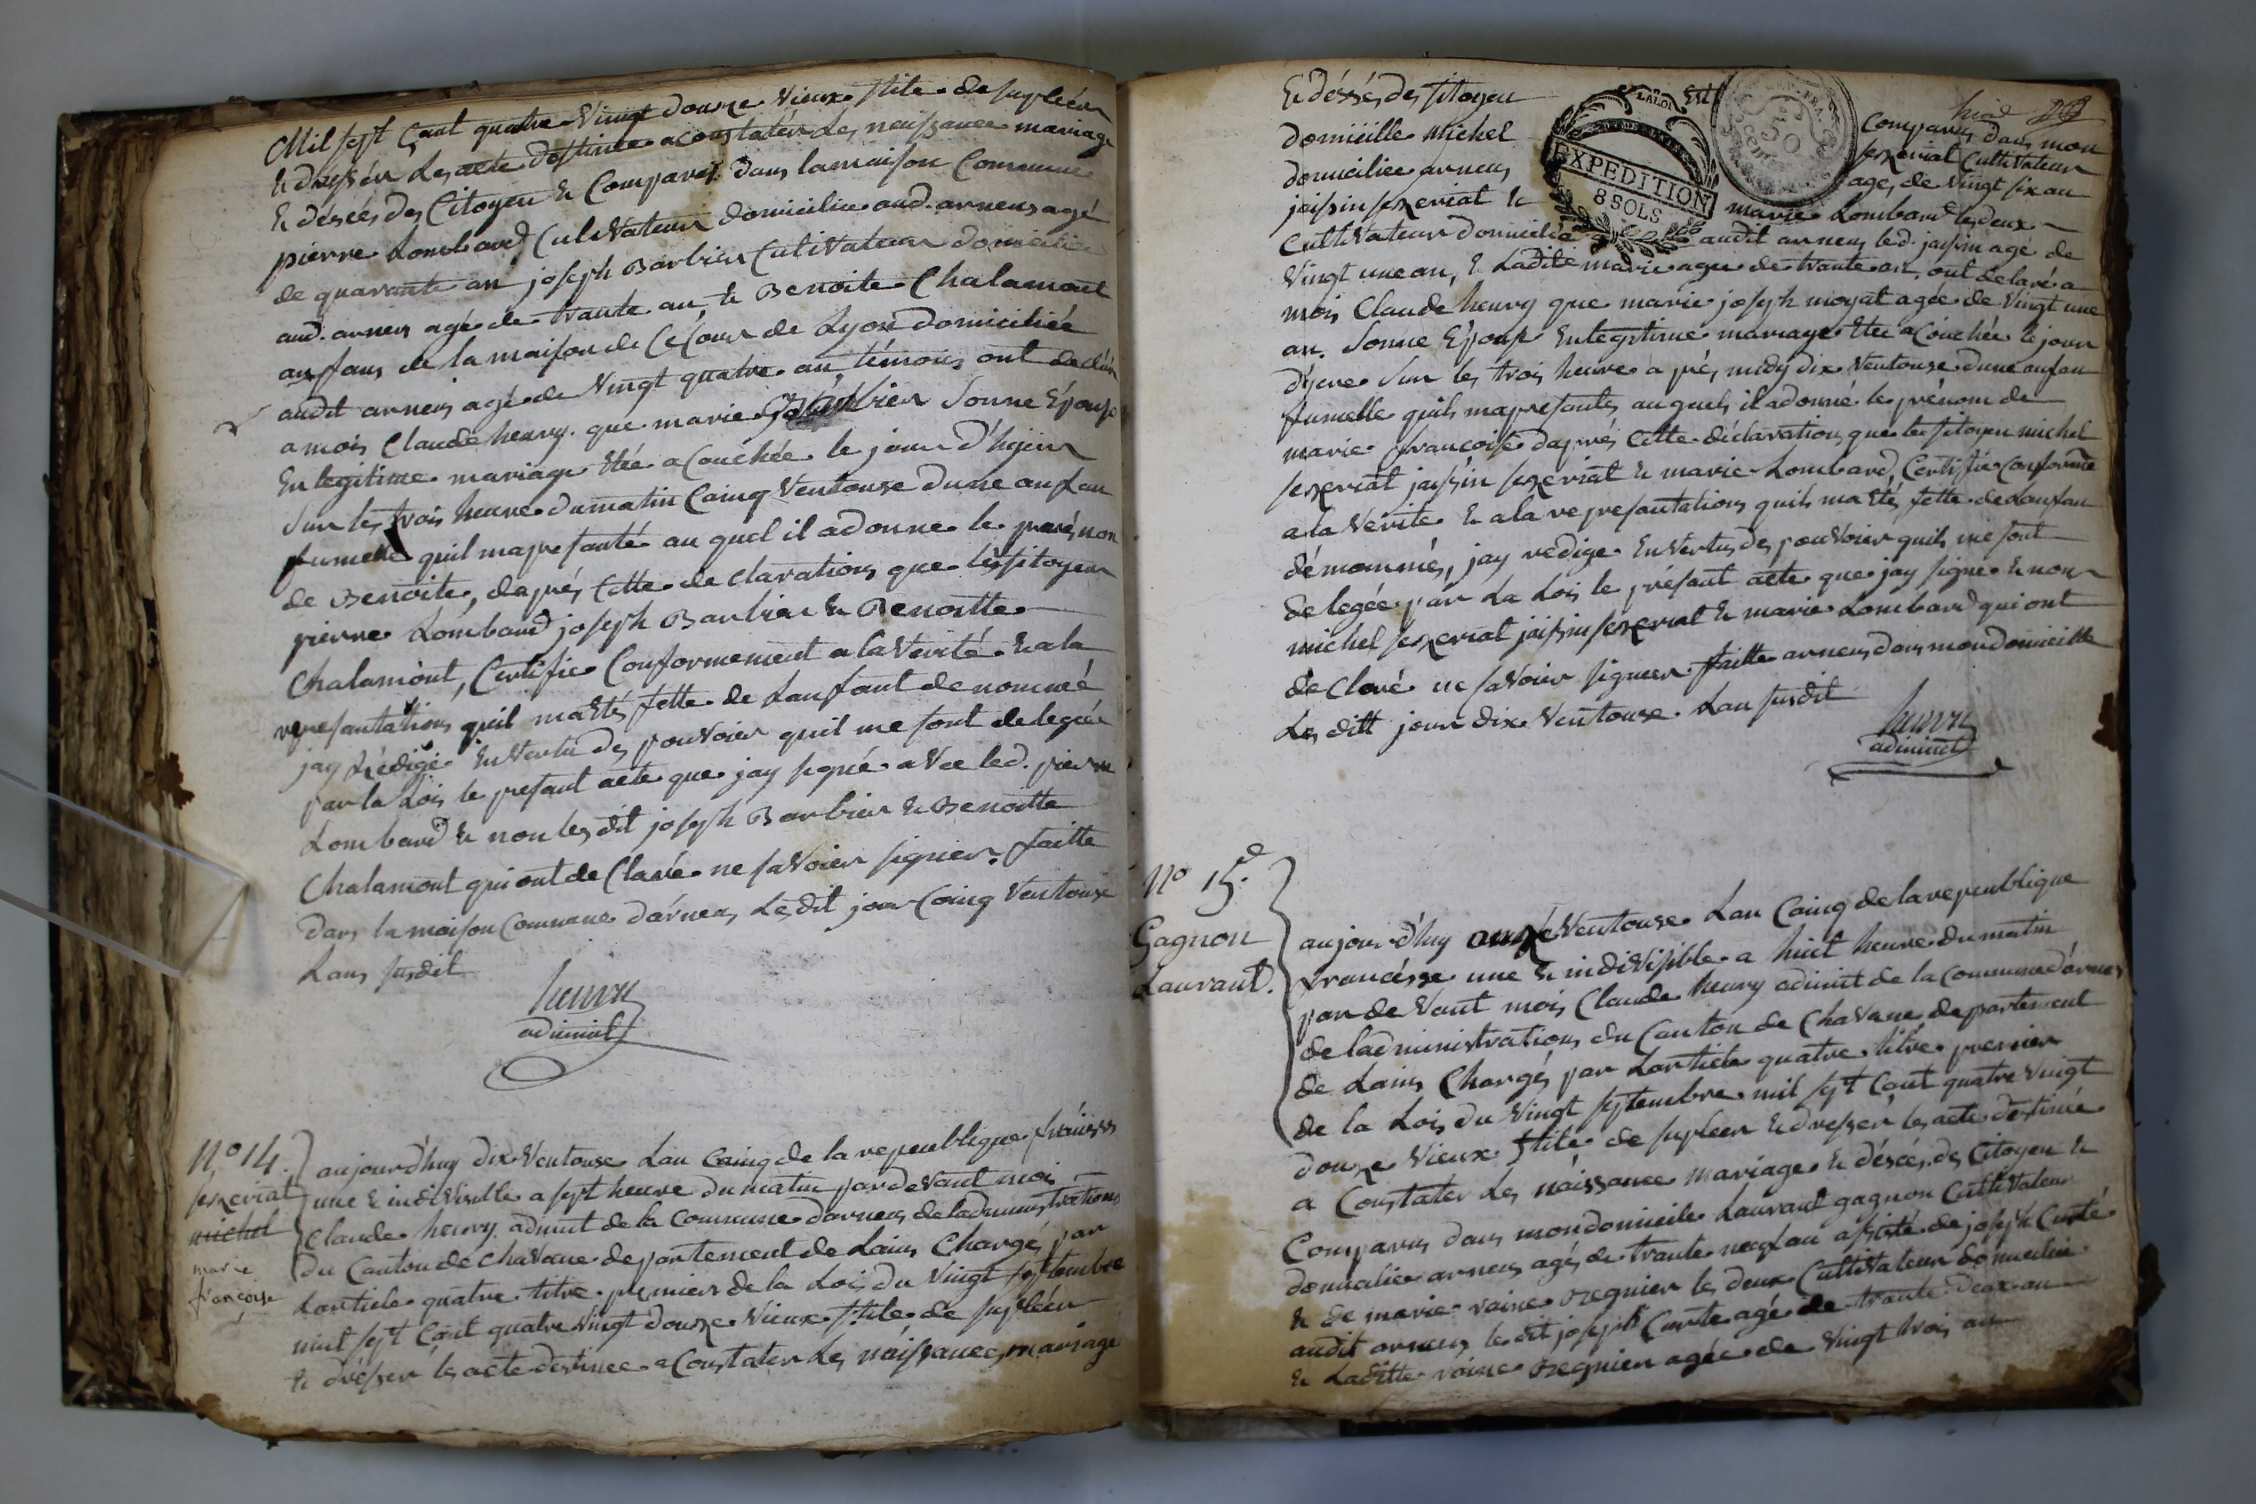 Mil sept Cant quatre Vingt douze Vieux stile de supleér
& dréssér les acte destinée aconstatér les naissance mariage
& désées des Citoyen & Comparus dans lamaison Commune
pierre Lombard Cultivateur domicilie aud. arnens agé
de quarante an joseph Barbier Cultivateur domicilie
aud. arnens agé de trante an & Benoite Chalamont
anfans de la maison de Lyon domiciliée
audit arnens agé de Vingt quatre an témoins ont declaré
a mois Claude henry que marie Barbier Sonne Épouse
En legitime mariage Etée acouchée le jour d'hyer
Sur les trois heure dumatin Cainq Ventouse dune anfan
fumelle quil mapresanté au quel il adonne le prénon
de Benoite, daprés Cette de clarations que les sitoyen
pierre Lombard joseph Barbier & Benoitte
Chalamont, Certifie Conformement ala Verité & ala
represantations quil mastés fette de Lanfant denommé
jay Rédigé En Vertu des pouvoier quil me sont delegée
par la Lois le presant acte que jay signé avec led. pierre
Lombard & non les dit joseph Barbier & Benoitte
Chalamont qui ont de Claré ne savoier signier. faitte
dans la maison Commune d'arnens, Ledit jour Cainq Ventouse
Lans susdit
henry
adimint
N° 14.
sexeriat
michel
marie
françoise
aujourd'huy dix Ventouse Lan Cainq de la republique
une & indivisible a sept heure du matin pardevant mois
Claude henry adimint de la Commune darnens de ladministrations
du Canton de chavane departement de Lains Chargés par
Larticle quatre titre premier de la Lois du Vingt septembre
mil sept Cant quatre Vingt douze Vieux stile de supléer
& drésser les acte destinee a Constater les naissances, mariage
& déssés des sitoyen Comparus dans mon
domicille Michel sexeriat Cultivateur
domiciliee arnens age de Vingt six an
jaissin sexeriat & marie Lombard les deux
Cultivateur domiciliée audit arnens led. jaissin agé de
Vingt une an, & Ladite marie agee de trante an, ont delaré a
mois Claude henry que marie joseph moyat agée de Vingt une
an. Sonne Épouse En legitime mariage Etée acouchée le jour
d'jere Sur les trois heure a prés midy dix Ventouse dune anfan
fumelle quils mapresantes auquels il adonné le prénom de
marie françoise daprés Cette déclaration que les sitoyen michel
sexeriat jaissin sexeriat & marie Lombard Certifie Conforme
a la Vérite & ala represantations quils mastés fette de Lanfan
démommés, jay redige En Vertus des pouvoier quils me sont
delegée par La Lois le présant acte que jay signe & non
michel sexeriat jaissin sexeriat & marie Lombard qui ont
déClaré ne savoier signier faitte arnens dans mon domicille
Les ditt jour dix Ventouse Lan susdit
henry
adimint
LA LOI
EXPEDITION
8 SOLS
50
N° 15.e
Gagnon
Laurant.
aujour d'huy onze Ventouse Lan Cainq de la republique
francésse une & indivisible a huit heure du matin
par de Vant mois Claude henry adimint de la Commune d'arnens
de ladministrations du Canton de Chavane departement
de Lains Chargés par Larticle quatre titre premier
de la Lois du Vingt septembre mil sept Cant quatre Vingt
douze Vieux stile de supleer & dresser les acte destinée
a Constater Les naissance mariage & désées des Citoyen &
Comparus dans mon domicile Laurant gagnon Cultivateur
domicilie arnens agés de trante neuf an assisté de joseph Curté
& de marie raine regnier les deux Cultivateur domicilie
audit arnens le dit joseph Curte agé de trante deux an
& Laditte raine regnier agée de Vingt trois an